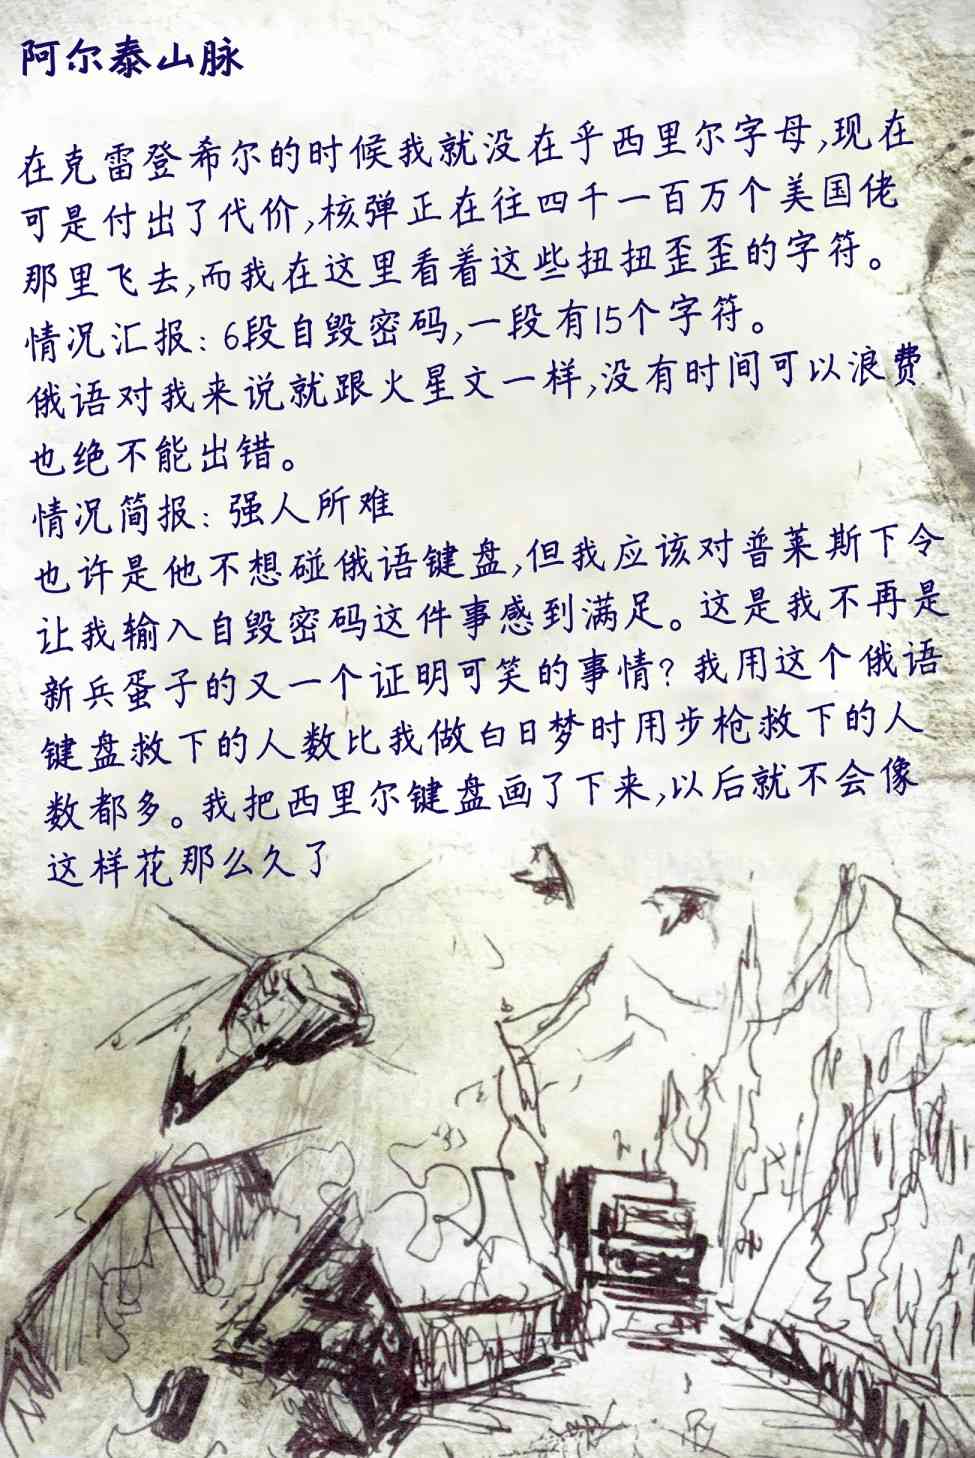 阿尔泰山脉
在克雷登希尔的时候我就没在乎西里尔字母,现在
可是付出了代价,核弹正在往四千一百万个美国佬
那里飞去,而我在这里看着这些扭扭歪歪的字符。
情况汇报: 6段自毁密码,一段有15个字符。
俄语对我来说就跟火星文一样,没有时间可以浪费
也绝不能出错。
情况简报: 强人所难
也许是他不想碰俄语键盘,但我应该对普莱斯下令
让我输入自毁密码这件事感到满足。这是我不再是
新兵蛋子的又一个证明可笑的事情? 我用这个俄语
键盘救下的人数比我做白日梦时用步枪救下的人
数都多。我把西里尔键盘画了下来,以后就不会像
这样花那么久了